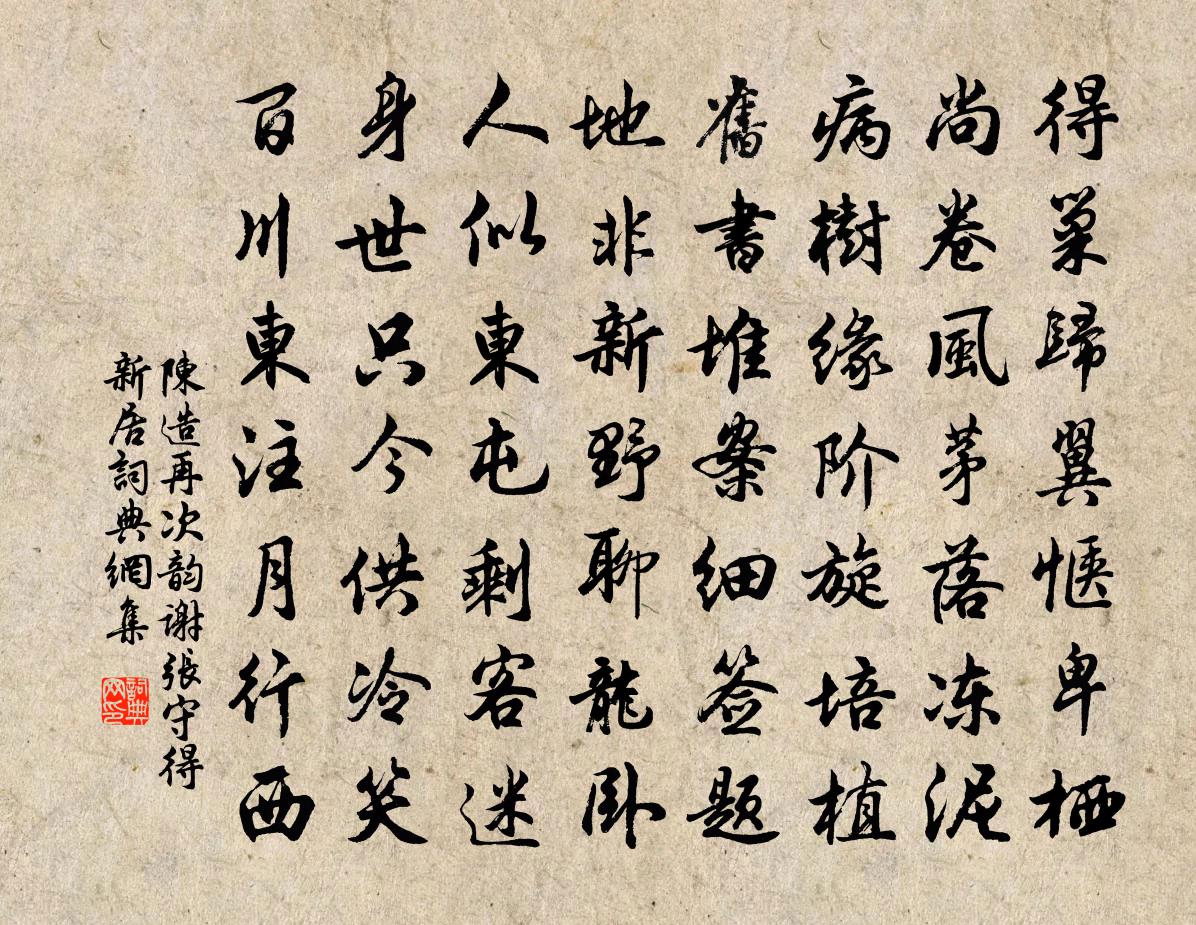 得巢歸翼愜卑栖
尚卷風茅落冻泥
病樹缘阶旋培植
舊書堆案细签题
地非新野聊龍卧
人似東屯剩客迷
身世只今供冷笑
百川東注月行西
陳造再次韵谢張守得
新居詞典網集
詞典
网印